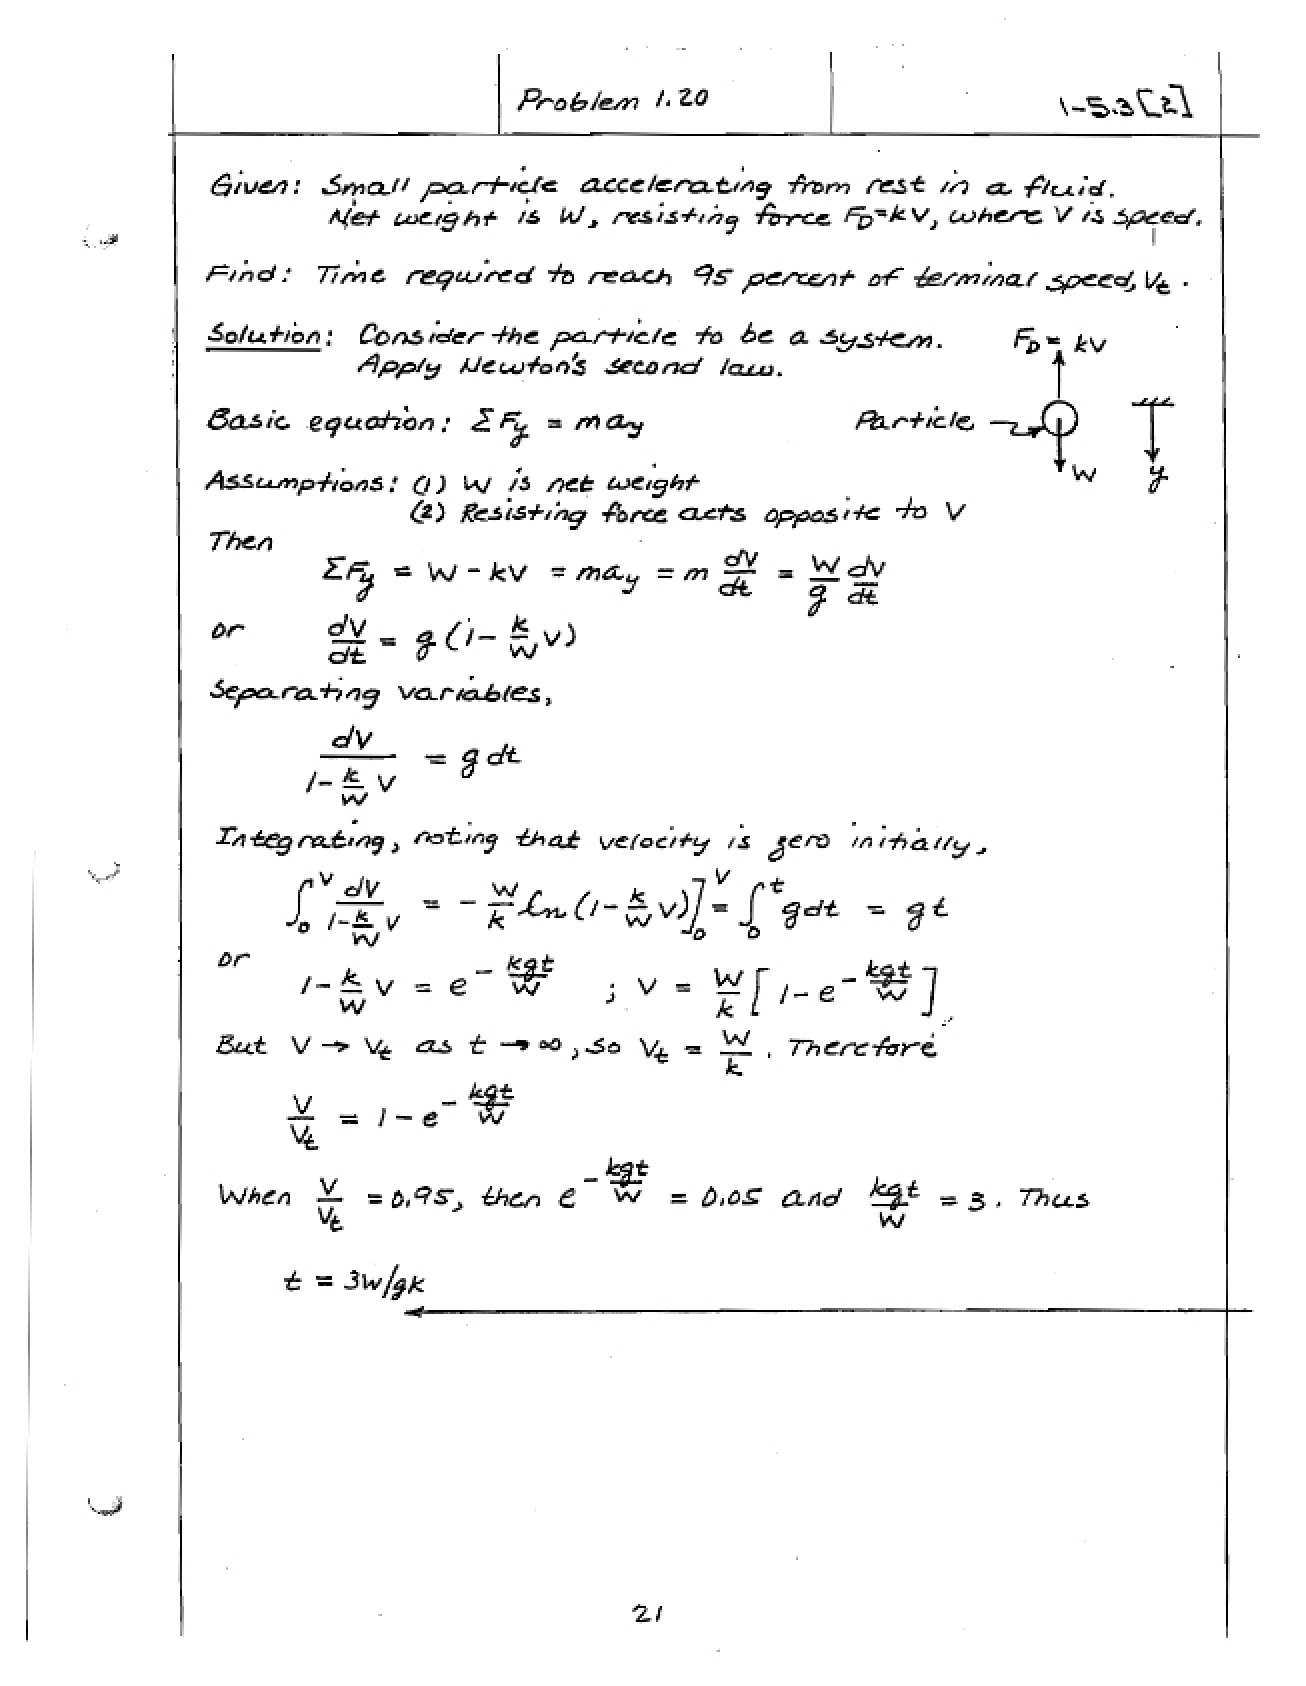 Problem 1.20
1-5.3[2]
Given: Small particle accelerating from rest in a fluid.
Net weight is W, resisting force F_D=kV, where V is speed.
Find: Time required to reach 95 percent of terminal speed, V_t.
Solution: Consider the particle to be a system.
F_D = kV
Apply Newton's second law.
Basic equation: ΣF_y = ma_y
Particle
W
y
Assumptions: (1) W is net weight
(2) Resisting force acts opposite to V
Then
ΣF_y = W - kV = ma_y = m dV/dt = W/g dV/dt
or dV/dt = g(1 - k/W V)
Separating variables,
dV/(1 - k/W V) = g dt
Integrating, noting that velocity is zero initially,
∫_0^V dV/(1 - k/W V) = - W/k ln(1 - k/W V)]_0^V = ∫_0^t gdt = gt
or
1 - k/W V = e^(- kgt/W) ; V = W/k [1 - e^(- kgt/W)]
But V → V_t as t → ∞, so V_t = W/k. Therefore
V/V_t = 1 - e^(- kgt/W)
When V/V_t = 0.95, then e^(- kgt/W) = 0.05 and kgt/W = 3. Thus
t = 3W/gk
21